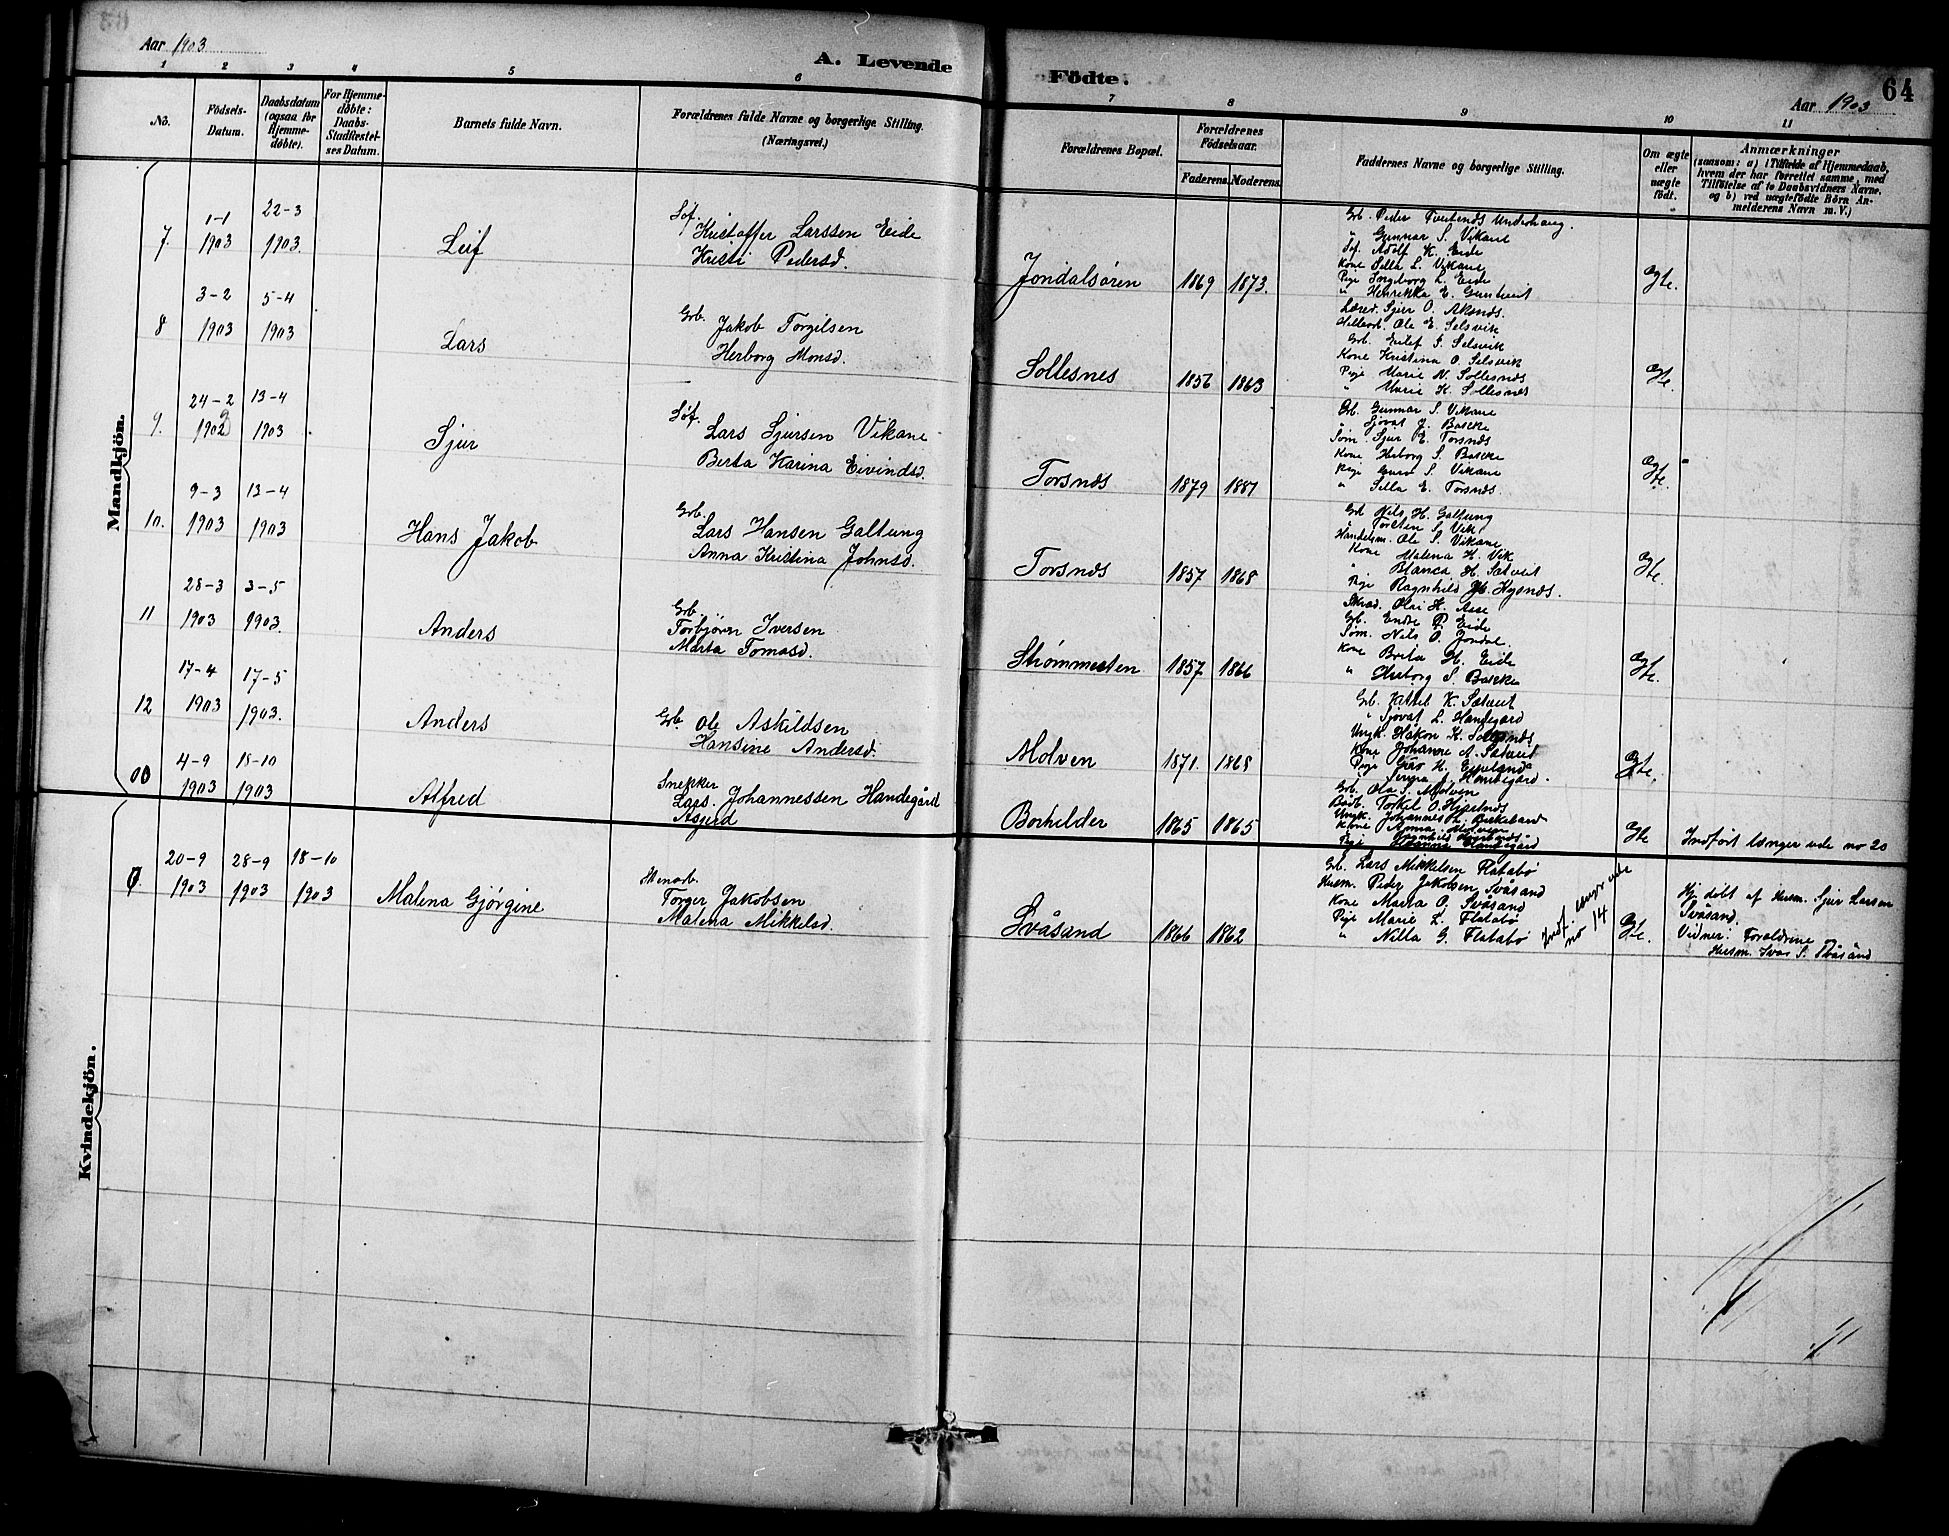 Aar 1903
A. Levende Födte.
Aar 1903
64
1 2 3 4 5 6 7 8 9 10 11
No.
Födsels-Datum.
Daabsdatum (ogsaa for Hjemmedöbte).
For Hjemmedöbte: Daabs-Stadfæstelses Datum.
Barnets fulde Navn.
Forældrenes fulde Navne og borgerlige Stilling.
(Næringsvei.)
Forældrenes Bopæl.
Forældrenes Födselsaar.
Faderens. Moderens.
Faddernes Navne og borgerlige Stilling.
Om ægte eller uægte födt.
Anmærkninger
(saasom: a) i Tilfælde af Hjemmedaab, hvem der har forrettet samme, med Tilföielse af to Daabsvidners Navne, og b) ved uægtefödte Börn Anmelderens Navn m.V.)
Mandkjön.
7. 1-1 1903 22-3 1903. Leif
Søf. Kristoffer Larssen Eide
Kristi Pedersd.
Jondalsøren 1869 1873.
Grb. Peder Tveitends Underhaug.
" Gunnar S. Vikane
Søf. Adolf K. Eide
Kone Silla L. Vikane
Pige Ingeborg L. Eide
" Henrikka E.
Egte.
8 3-2 1903 5-4 1903 Lars
Grb. Jakob Torgilsen
Herborg Monsd.
Sollesnes 1856 1863
Lærer. Sjur O. Aksnds.
Ole E. Selsvik
Grb. S. Selsvik
Kone Kristina O. Selsvik
Pige Marie N. Sollesnds
" Marie K. Sollesnds
Egte.
9. 24-2 1902 13-4 1903 Sjur
Søf. Lars Sjursen Vikane
Berta Karina Eivindsd.
Torsnds 1879 1881
Grb. Gunnar S. Vikane
" Sjovat J. Bakke
Søm. Sjur E. Torsnds
Kone Herborg S. Bakke
Pige Guro S. Vikane
" Silla E. Torsnds.
Egte.
10. 9-3 1903 13-4 1903 Hans Jakob
Grb. Lars Hansen Galtung
Anna Kristina Johnsd.
Torsnds 1857 1868
Grb Nils H. Galtung
" Torsten S. Vik
Handelsm. Ole S. Vikane
Kone Malena H. Vik
" Blanca H. Sætveit
Pige Ragnhild Hysnds.
Egte.
11 28-3 1903 3-5 1903. Anders
Grb. Torbjørn Iversen
Marta Tomasd.
Strømmesten 1857 1866
Skræd. Olai H. Aase
Grb. Endre P. Eide
Søm. Nils O. Jondal
Kone Brita H. Eide
" Herborg S. Bakke
Egte.
12 17-4 1903 17-5 1903. Anders
Grb. Ole Askildsen
Hansine Andersd.
Molven 1871. 1868
Grb. Kittil K. Sætveit
" Sjovat L. Handegård
Ungk. Håkon K. Sollesnds
Kone Johanne A. Sætveit
Pige Guro H.
Handegård.
Egte.
4-9 1903 18-10 1903 Alfred
Snekker Lars Johannessen Handegård
Asgerd
Borhilder 1865 1865
Grb. Ola S. Molven
Bådb. Torkel O. Hjartnds
Ungk. Johannes L.
Kone Anna
Pige Handegård
Egte Indført længer ude no 20
Kvindekjön.
20-9 1903 28-9 1903 18-10 1903 Malena Gjørgine
Torger Jakobsen
Malena Mikkelsd.
Svåsand 1866 1862
Grb. Lars Mikkelsen Flatabø
Husm. Peder Jakobsen Svåsand
Kone Marta O. Svåsand
Pige Marie L. Flatabø
" Nilla G. Flatabø
Indf. længer ude no 14
Egte.
Hj. døbt af Husm. Sjur Larsen
Svåsand.
Vidner: Forældrene
Husm. Ivar S. Svåsånd